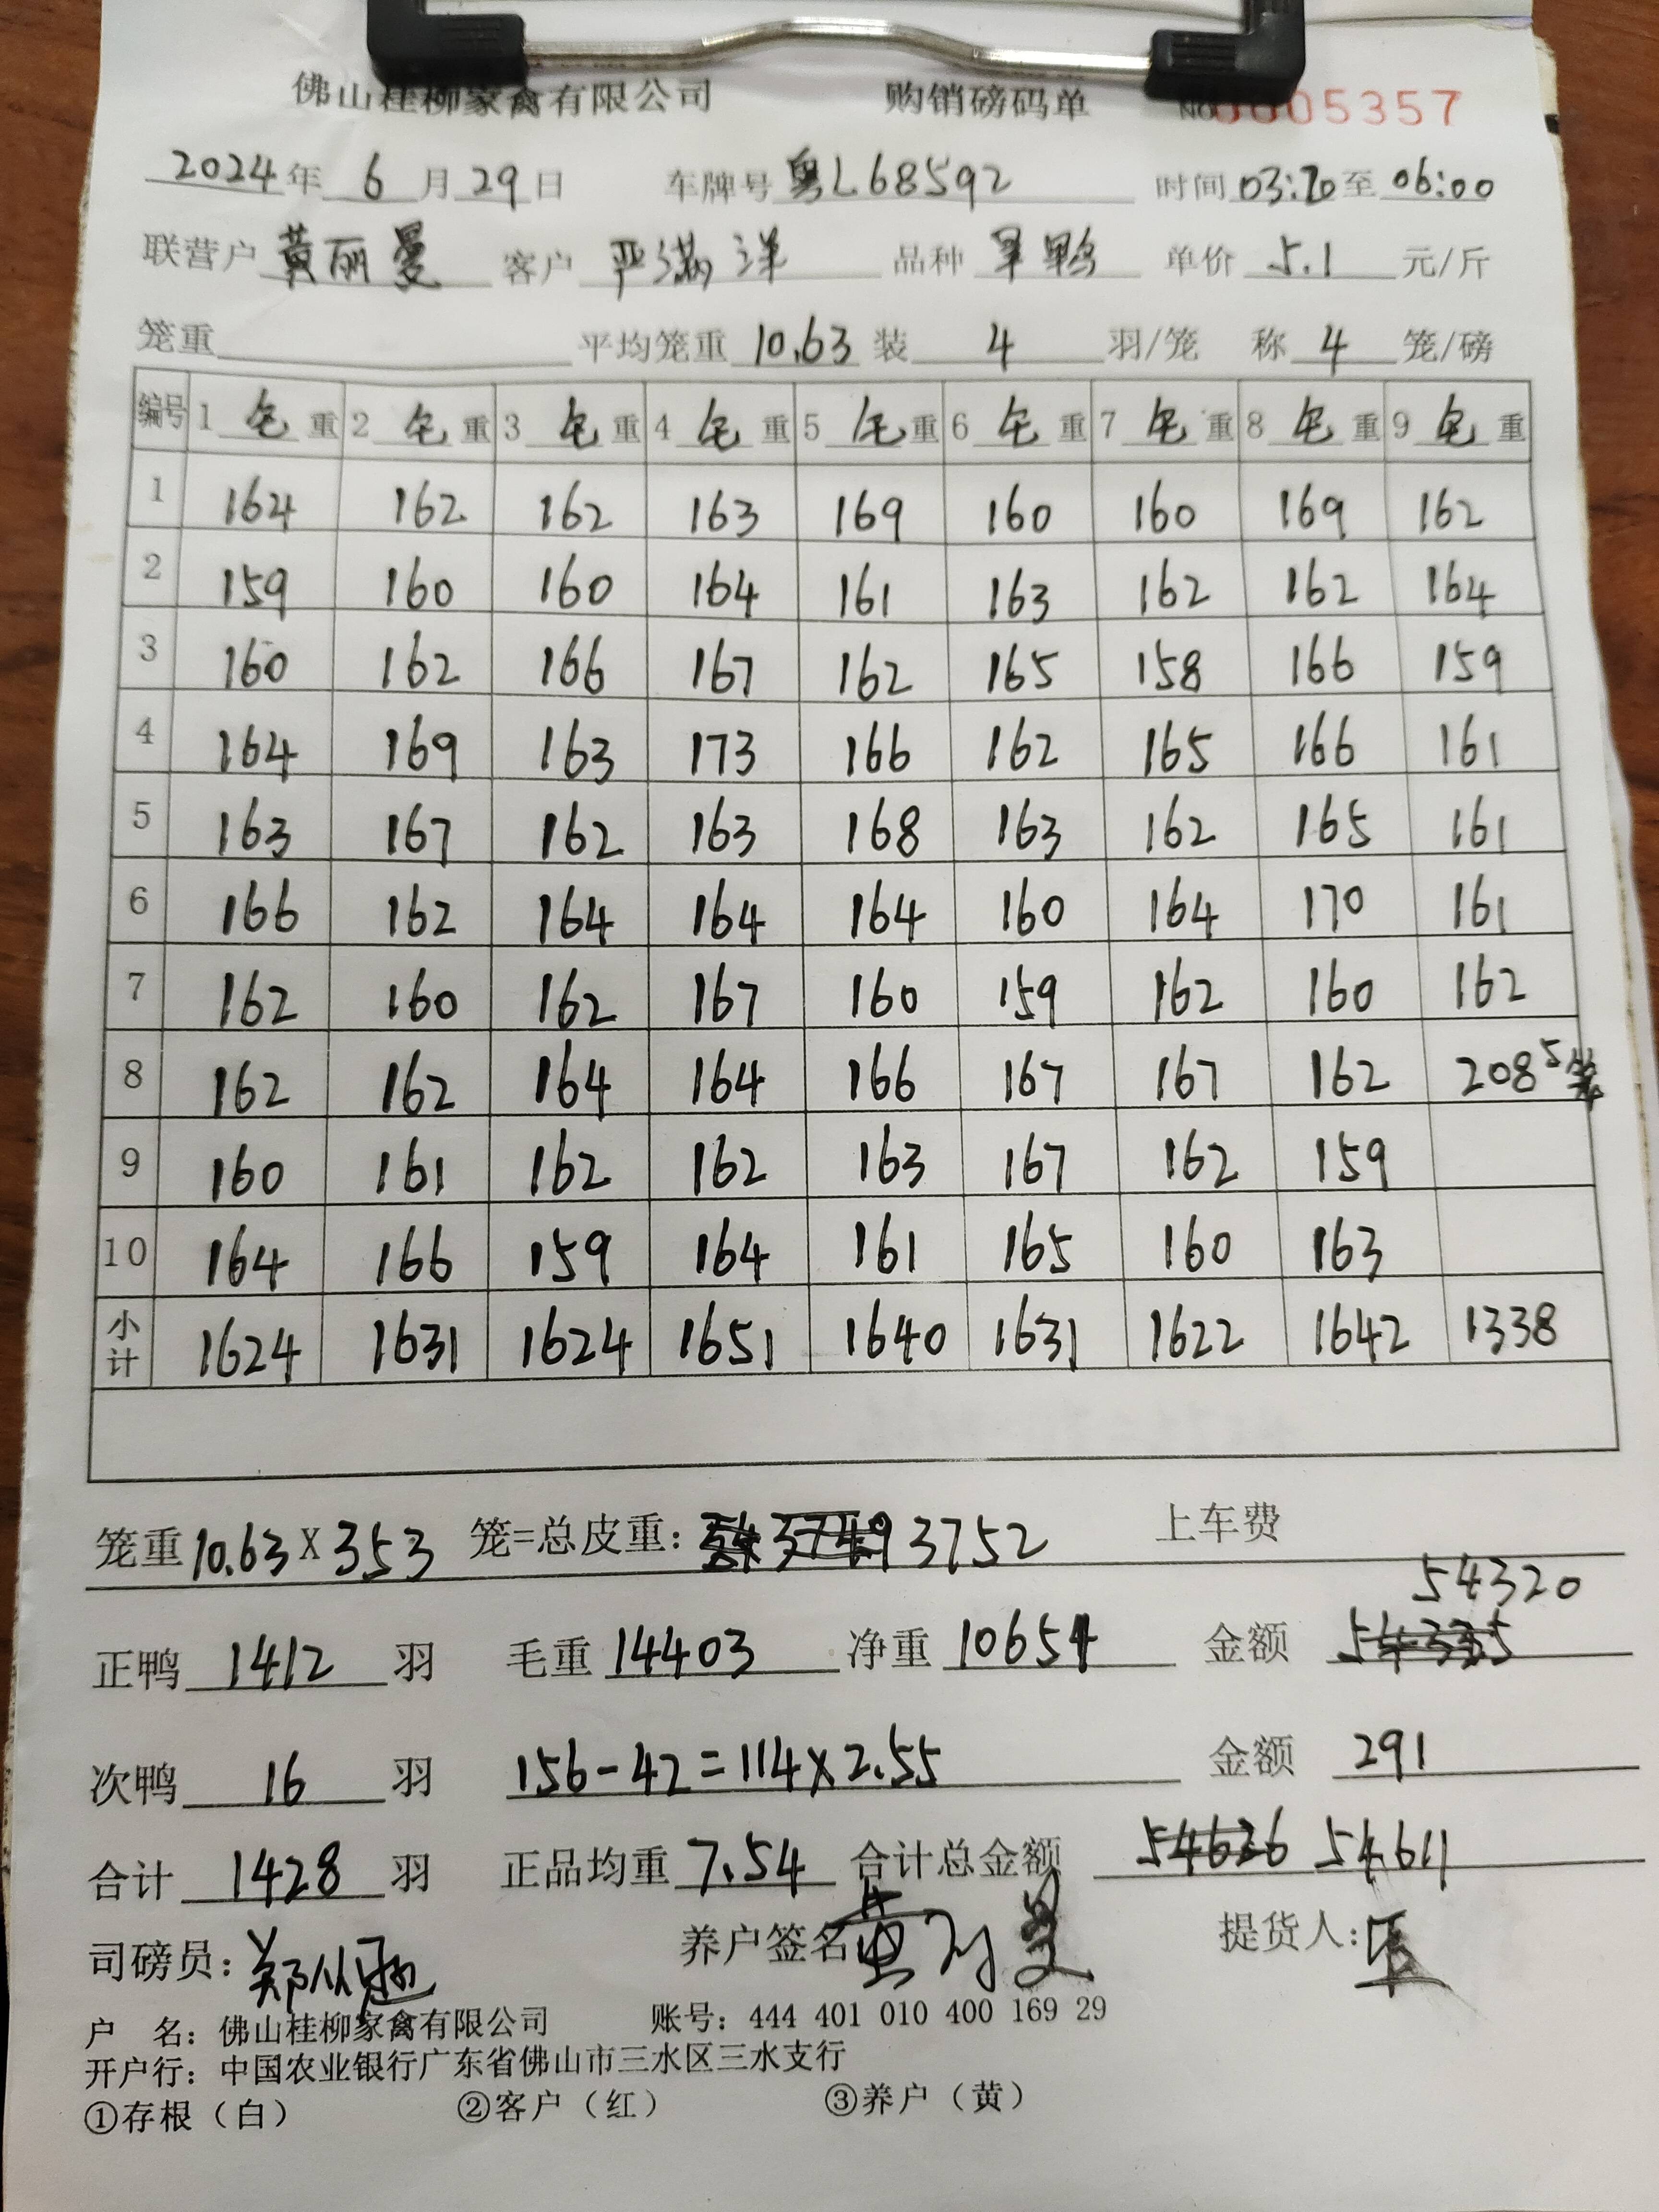 佛山桂柳家禽有限公司 购销磅码单 №0005357
2024年 6月29日 车牌号 粤L68592 时间 03:20至06:00
联营户 黄丽曼 客户 严满洋 品种 旱鸭 单价 5.1 元/斤
笼重 平均笼重 10.63 装 4 羽/笼 称 4 笼/磅
编号 1 毛重 2 毛重 3 毛重 4 毛重 5 毛重 6 毛重 7 毛重 8 毛重 9 毛重
1 164 162 162 163 169 160 160 169 162
2 159 160 160 164 161 163 162 162 164
3 160 162 166 167 162 165 158 166 159
4 164 169 163 173 166 162 165 166 161
5 163 167 162 163 168 163 162 165 161
6 166 162 164 164 164 160 164 170 161
7 162 160 162 167 160 159 162 160 162
8 162 162 164 164 166 167 167 162 208 5笼
9 160 161 162 162 163 167 162 159
10 164 166 159 164 161 165 160 163
小计 1624 1631 1624 1651 1640 1631 1622 1642 1338
笼重10.63X353 笼=总皮重: 3749 3752 上车费
54320
正鸭 1412 羽 毛重 14403 净重 10651 金额 54335
次鸭 16 羽 156-42=114X2.55 金额 291
合计 1428 羽 正品均重 7.54 合计总金额 54626 54611
司磅员: 养户签名 黄丽曼 提货人:
户 名: 佛山桂柳家禽有限公司 账号: 444 401 010 400 169 29
开户行: 中国农业银行广东省佛山市三水区三水支行
①存根（白） ②客户（红） ③养户（黄）